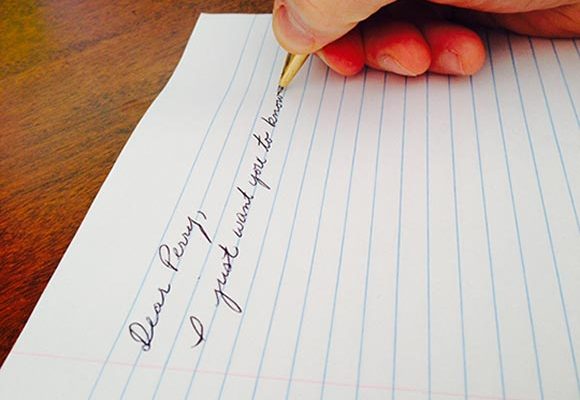 Dear Perry,
I just want you to know